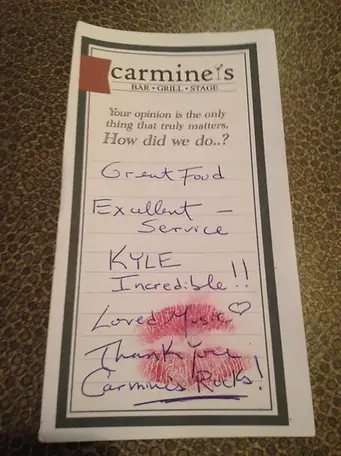 carmine's
BAR • GRILL • STAGE
Your opinion is the only
thing that truly matters.
How did we do..?
Great Food
Excellent –
Service
KYLE
Incredible!!
Loved Music ♡
Thank you
Carmine's Rocks!